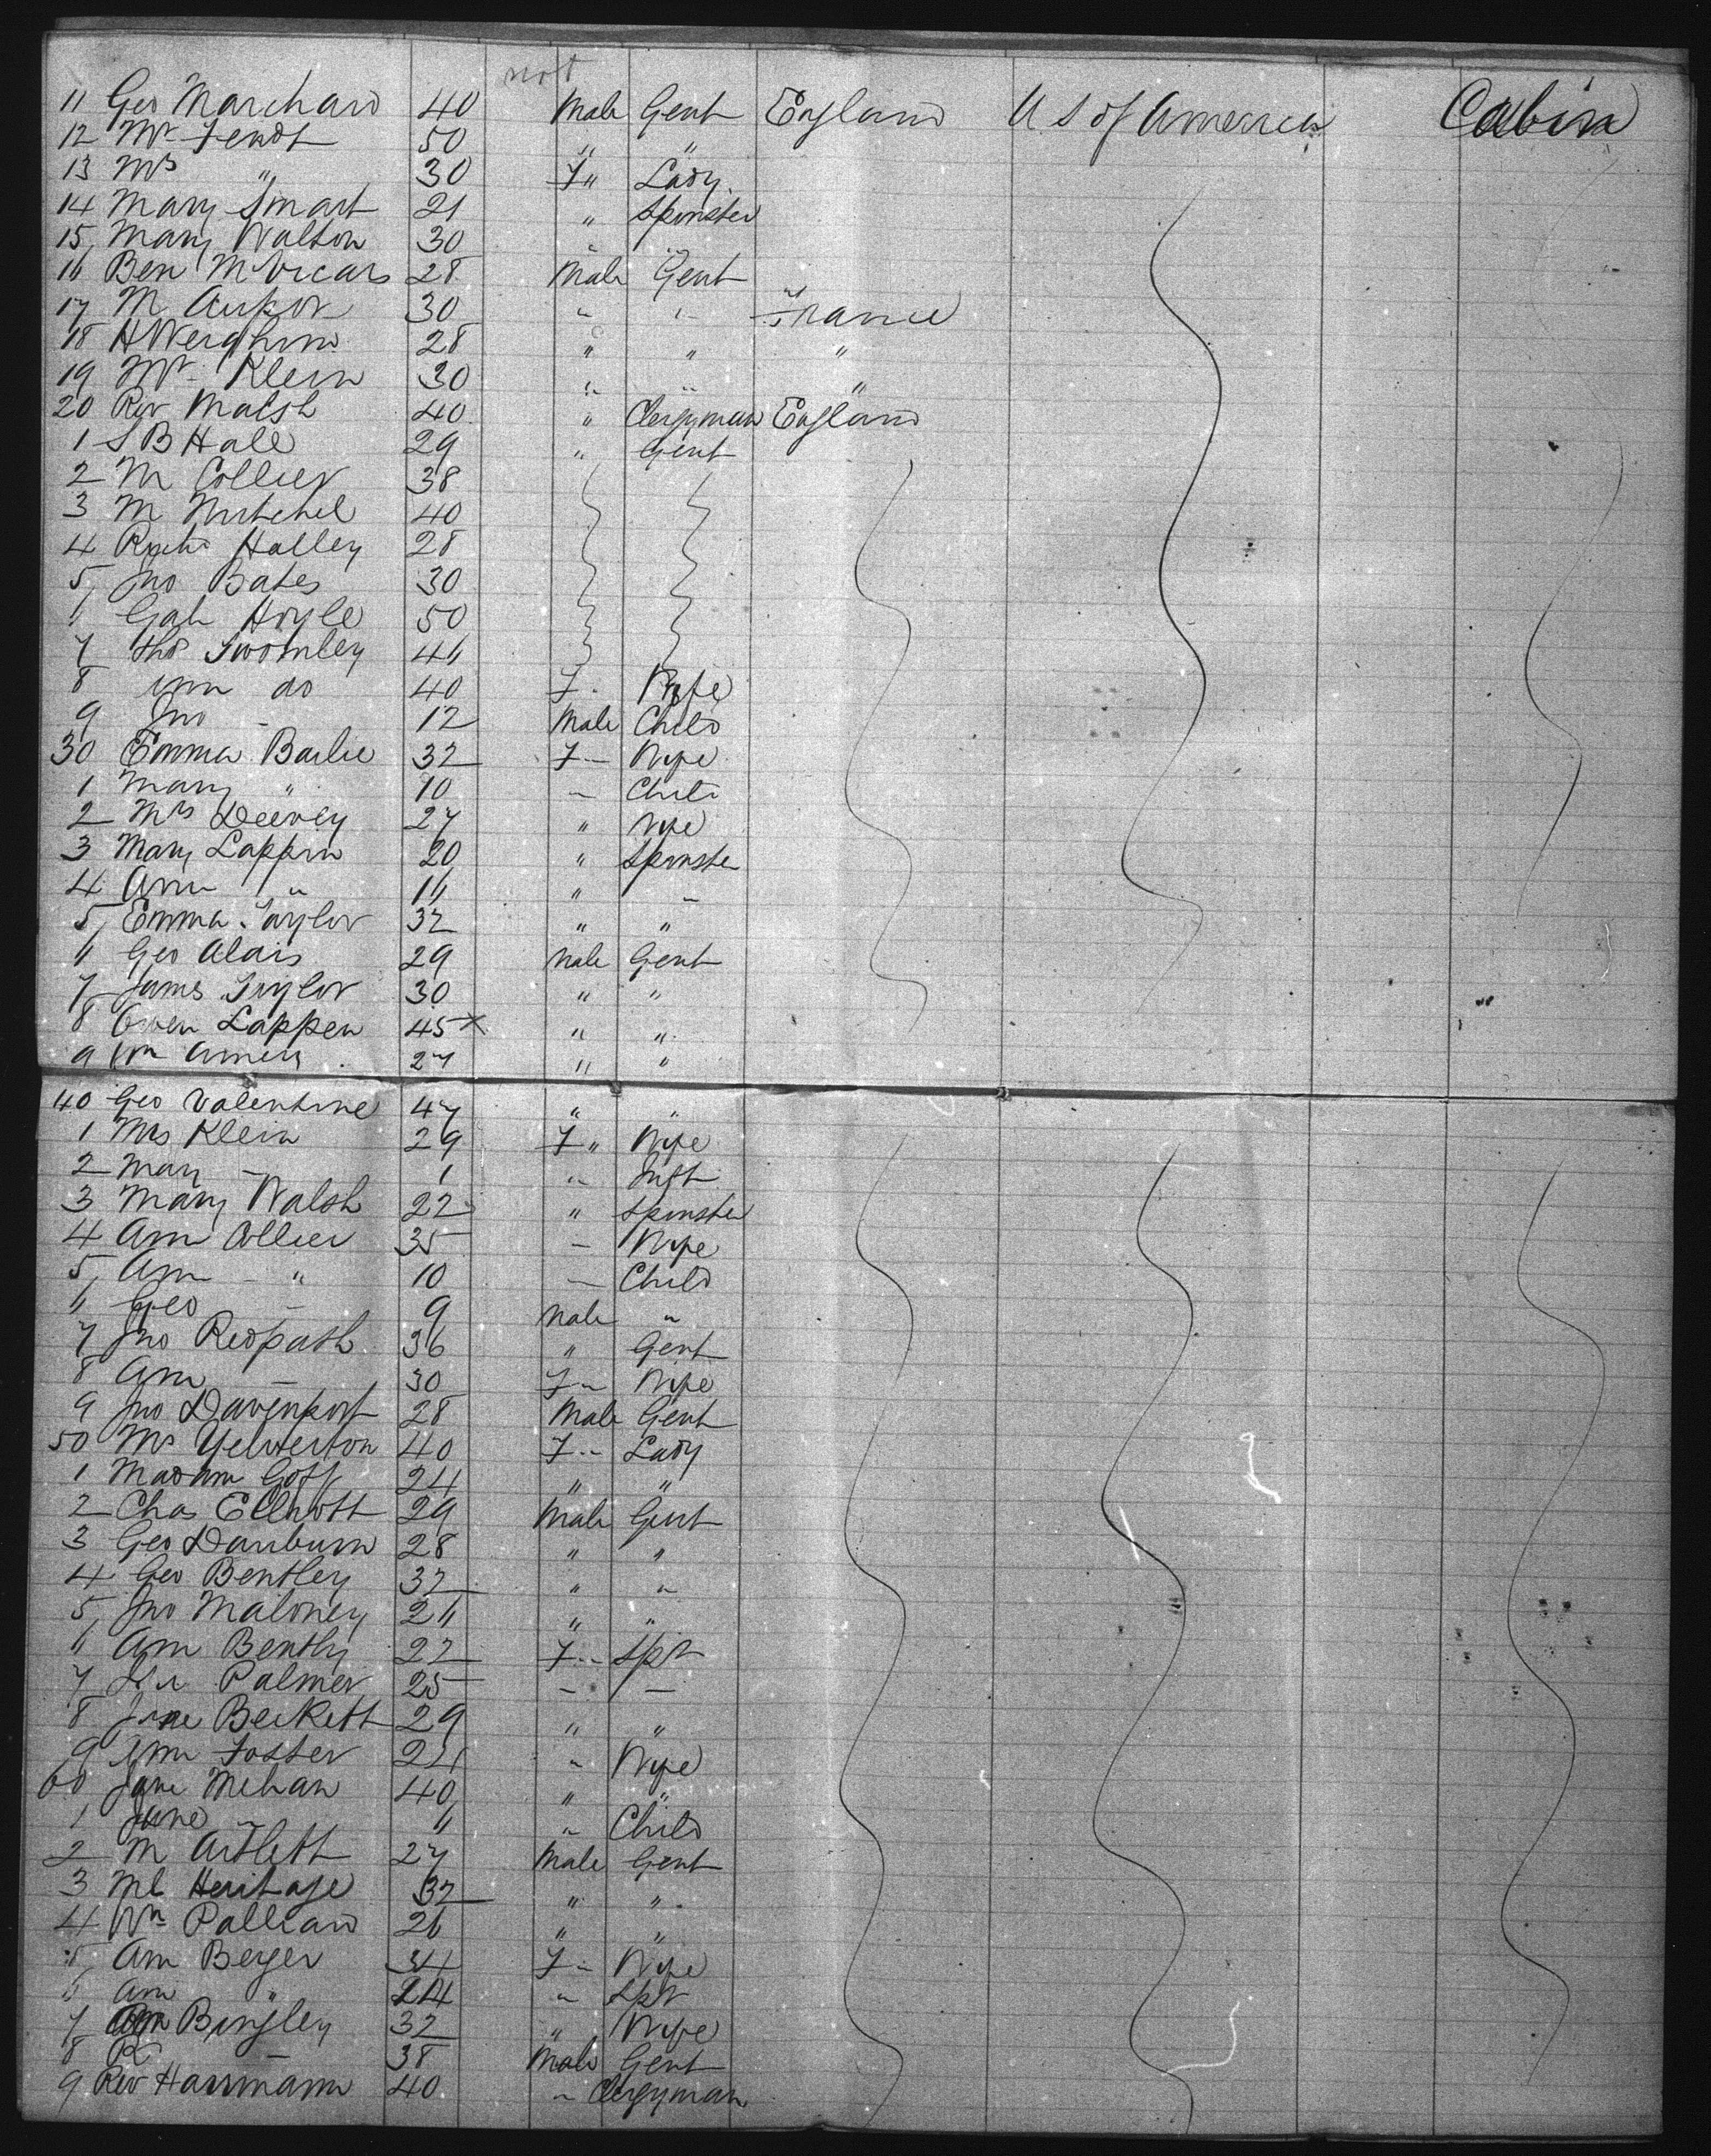 not
11 Geo Marchand 40 Male Gent England U S of America Cabin
12 Mr Fendt 50 " "
13 Mrs " 30 F " Lady
14 Mary Smart 21 " Spinster
15 Mary Walton 30 " "
16 Ben McVicars 28 Male Gent
17 M 30 " " France
18 28 " " "
19 Mr Klein 30 " " "
20 Rev Walsh 40 " Clergyman England
1 S B Hall 29 " Gent
2 M Collier 38
3 M Mitchel 40
4 Halley 28
5 Jno Bates 30
6 Hoyle 50
7 Thos Twomley 46
8 Ann do 40 F " Wife
9 Jno - 12 Male Child
30 Emma Bailie 32 F " Wife
1 Mary " 10 " Child
2 Mrs Deevey 27 " Wife
3 Mary Lappin 20 " Spinster
4 Ann " 16 " "
5 Emma Taylor 32 " "
6 Geo Alais 29 Male Gent
7 James Taylor 30 " "
8 Owen Lappen 45 x " "
9 Wm 27 " "
40 Geo Valentine 47 " "
1 Mrs Klein 29 F " Wife
2 Mary - 1 " Inft
3 Mary Walsh 22 " Spinster
4 Ann Collier 35 - Wife
5 Ann - " 10 - Child
6 Geo - 9 Male "
7 Jno Redpath 36 " Gent
8 Ann - 30 F " Wife
9 Jno Davenport 28 Male Gent
50 Mrs Yelverton 40 F " Lady
1 Madam Goff 24 " "
2 Chas Elliott 29 Male Gent
3 Geo Danburn 28 " "
4 Geo Bentley 32 " "
5 Jno Maloney 26 " "
6 Ann Bently 22 F " Spr
7 Palmer 25 - -
8 Jane Beckett 29 " "
9 Ann Foster 26 " Wife
60 Jane Mehan 40 " "
1 Jane " 6 " Child
2 M Artlett 27 Male Gent
3 Ml Heritage 32 " "
4 Wm 26 " "
5 Ann Berger 34 F " Wife
6 Ann " " Spr
7 Ann Bingley 32 " Wife
8 - 38 Male Gent
9 Rev Harrmann 40 " Clergyman